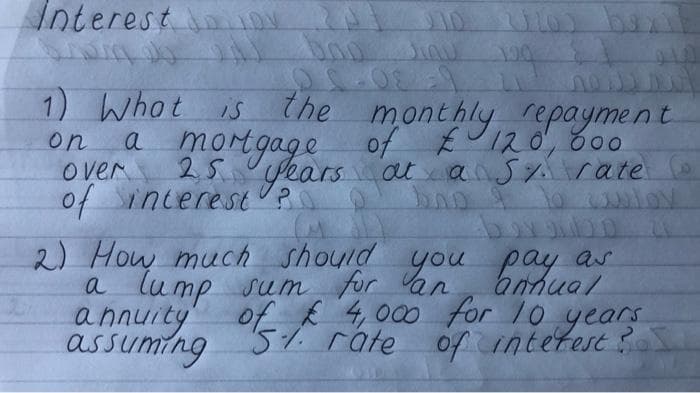 Interest
1) What is the monthly repayment
on a mortgage of £ 120,000
over 25 years at a 5% rate
of interest?
2) How much should you pay as
a lump sum for an annual
annuity of £ 4,000 for 10 years
assuming 5% rate of interest?